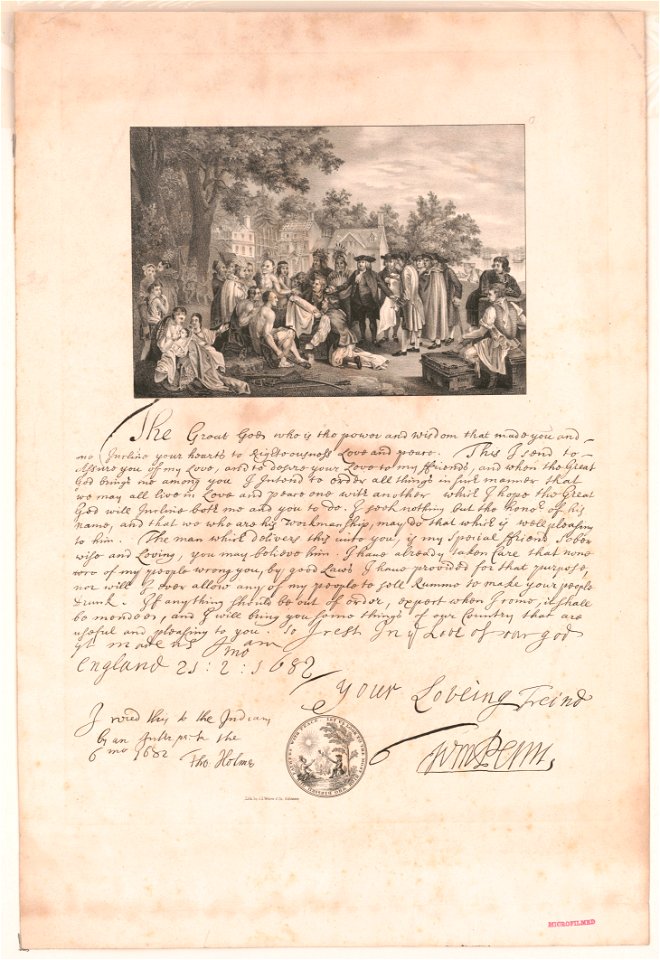 The Great God who is the power and wisdom that made you and
me Incline your hearts to Righteousness Love and peace. This I send to
Assure you of my Love, and to desire your Love to my ffriends, and when the Great
God brings me among you I Intend to order all things in such manner that
we may all live in Love and peace one with another which I hope the Great
God will Incline both me and you to do. I seek nothing but the honor of his
name, and that we who are his workmanship, may do that which is well pleasing
to him. The man which delivers this unto you, is my Special ffriend Sober
wise and Loving, you may believe him. I have already taken Care that none
of my people wrong you, by good Laws I have provided for that purpose,
nor will I ever allow any of my people to sell Rumme to make your people
drunk. If anything should be out of order, expect when I come, it shall
be mended, and I will bring you some things of our Country that are
useful and pleasing to you. So I rest In ye Love of our god
yt made us I am
England 21:2:1682
mo
Your Loveing Freind
I read this to the Indian
by an Interpreter the
6 mo 1682 Tho Holme
Wm Penn
MICROFILMED